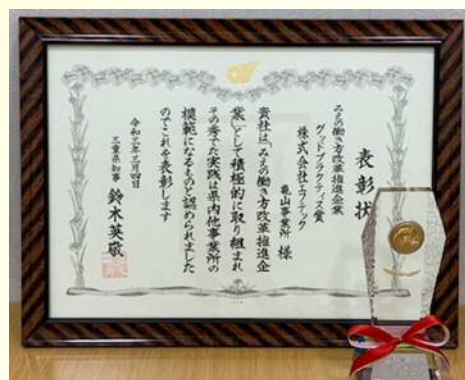 表彰状
みえの働き方改革推進企業
グッドプラクティス賞
株式会社エフテック
亀山事業所 様
貴社は「みえの働き方改革推進企
業」として積極的に取り組まれ
その秀でた実践は県内他事業所の
模範になるものと認められました
のでこれを表彰します
令和三年三月四日
三重県知事 鈴木英敬